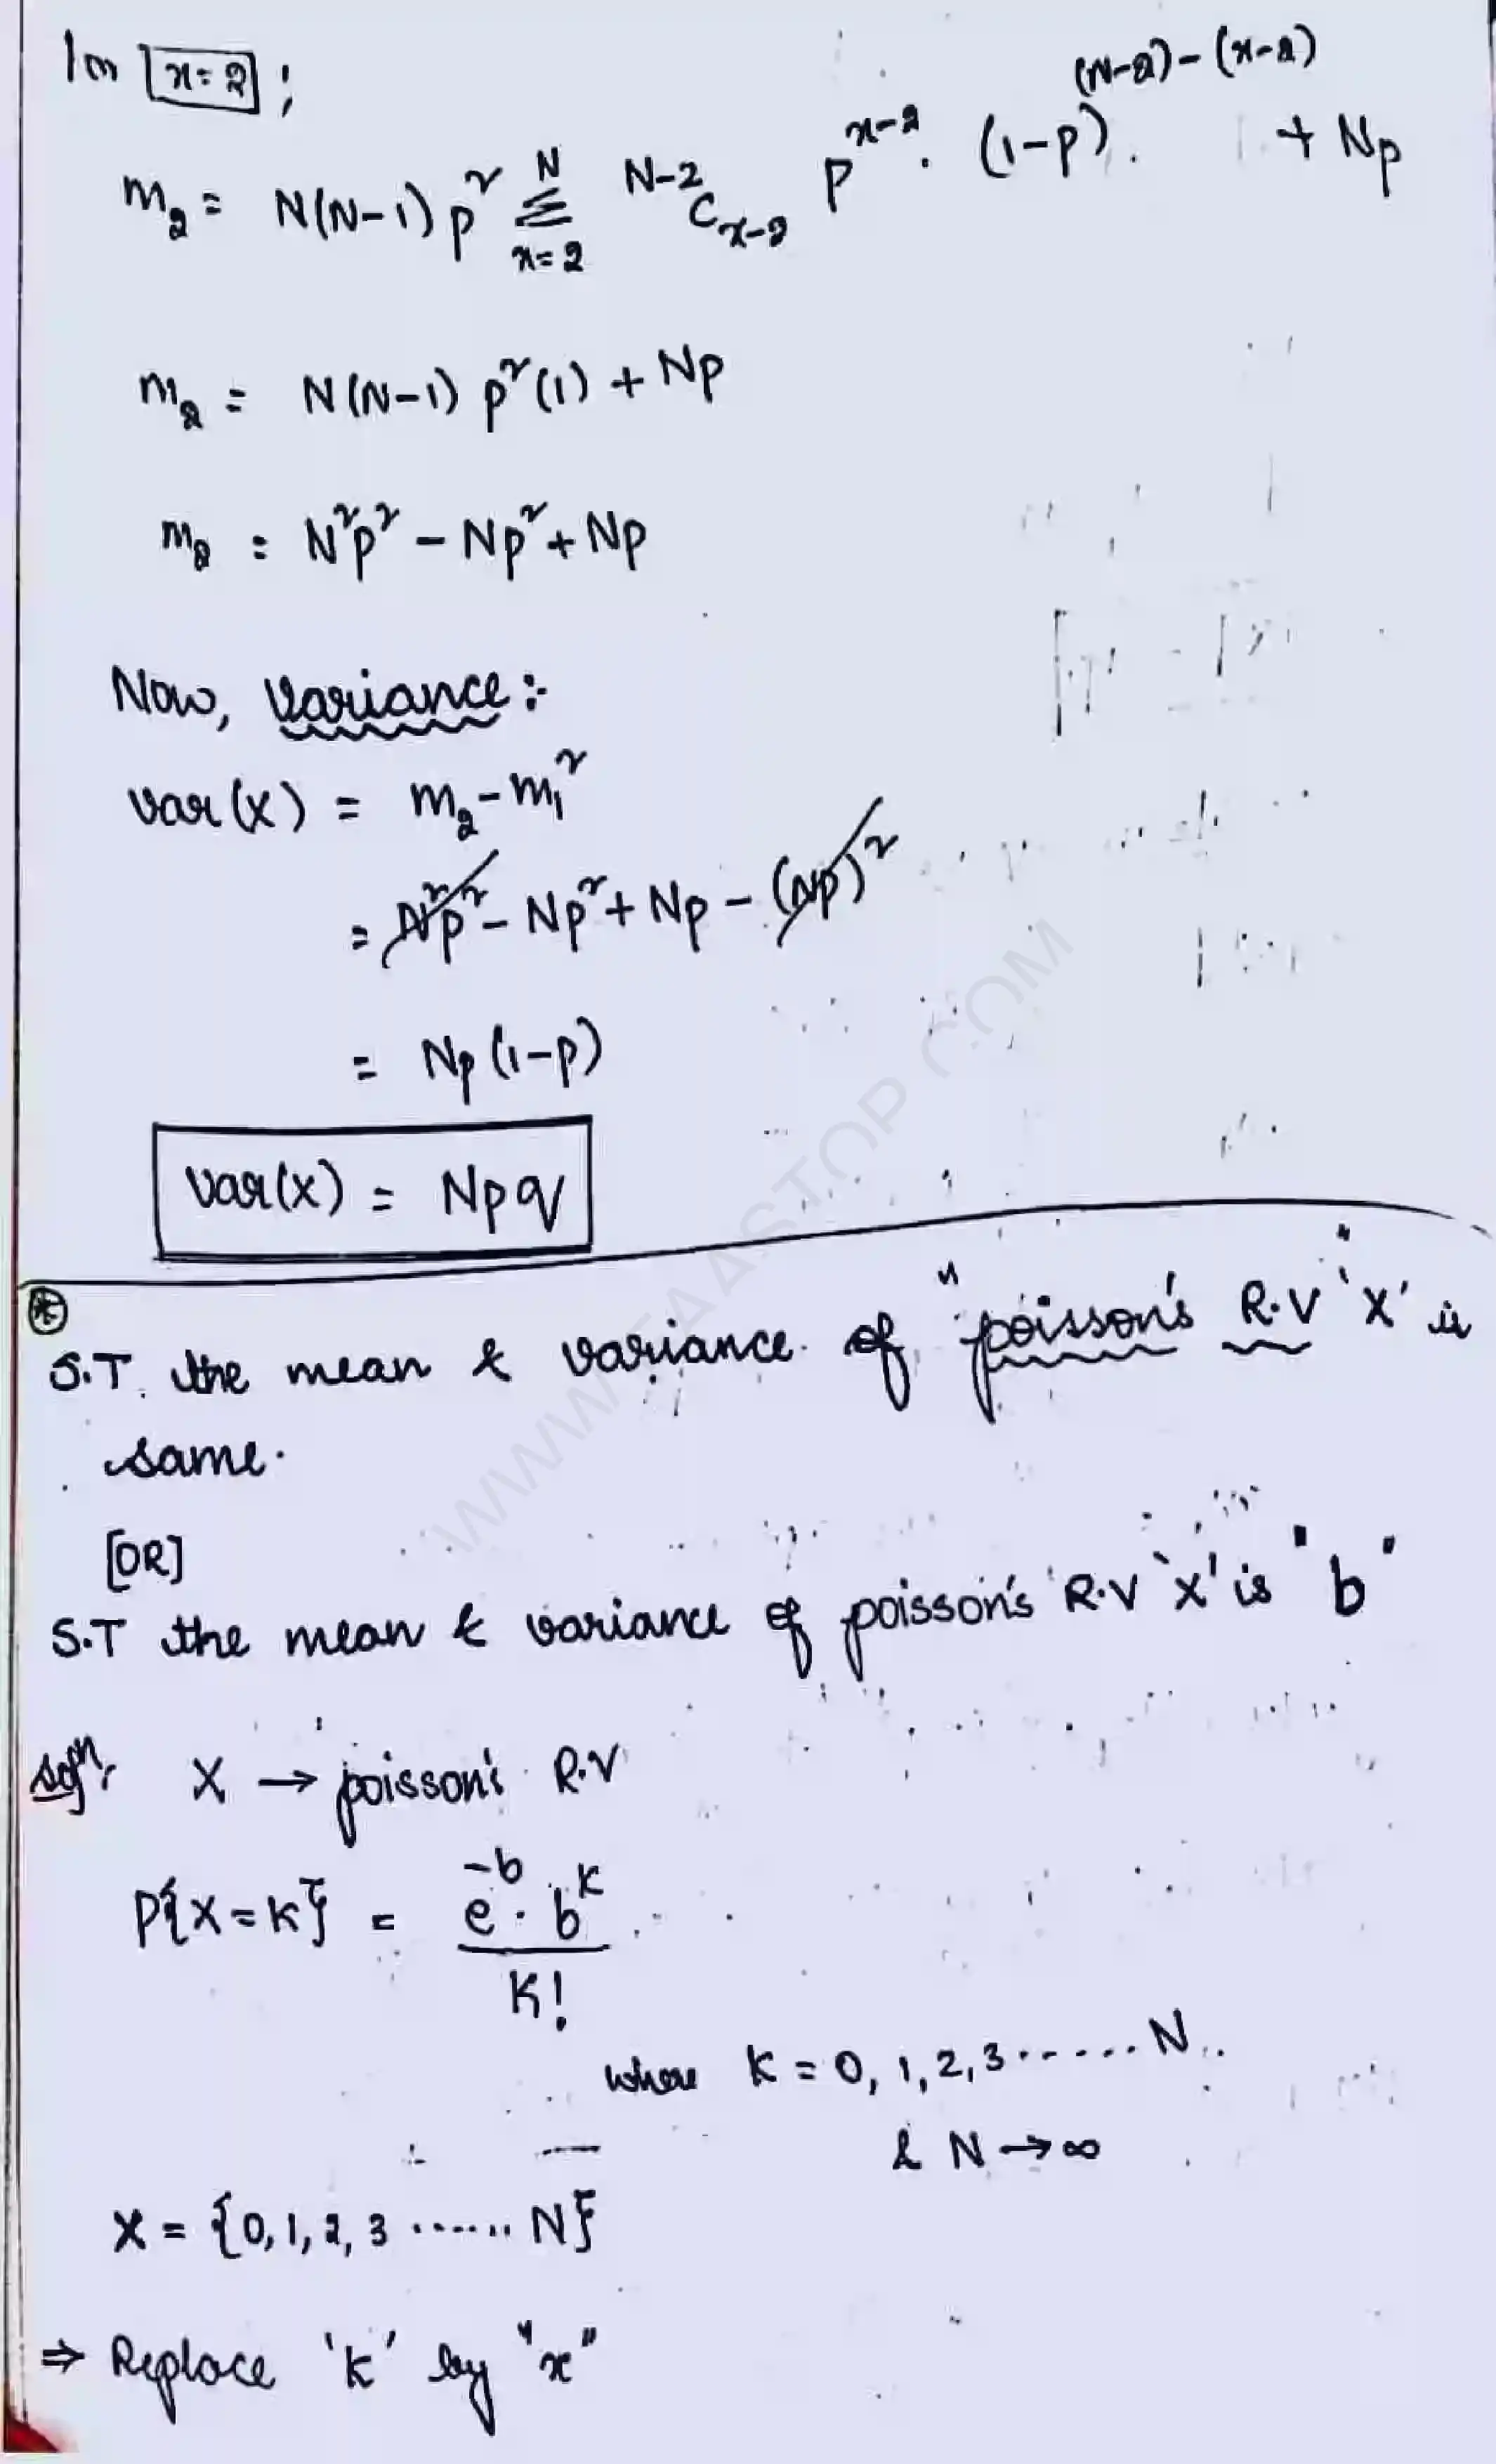 In [x=2] ;
m₂ = N(N-1) p² Σ_{x=2}^{N} ^{N-2}C_{x-2} p^{x-2} . (1-p)^{(N-2)-(x-2)} . + Np
m₂ = N(N-1) p² (1) + Np
m₂ = N²p² - Np² + Np
Now, Variance :-
Var(X) = m₂ - m₁²
= N²p² - Np² + Np - (Np)²
= Np (1-p)
Var(X) = Npq
* S.T. the mean & variance of "poisson's R.V" 'X' is
same.
[OR]
S.T the mean & variance of poisson's R.V 'X' is "b"
Solⁿ: X → poisson's R.V
P{X=K} = e^{-b} . b^K / K!
where K = 0, 1, 2, 3 ...... N
& N → ∞
X = {0, 1, 2, 3 ...... N}
⇒ Replace 'K' by "x"
WWW.FAASTOP.COM